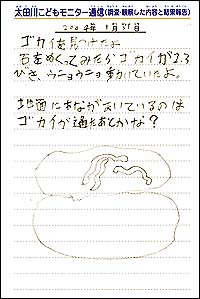 太田川こどもモニター通信(調査・観察した内容と結果報告)
2004年 8月31日
ゴカイを見つけたよ
石をめくってみたらゴカイが2.3
びき、ウニョウニョ動いていたよ。
地面にあながあいているのは
ゴカイが通ったあとかな?